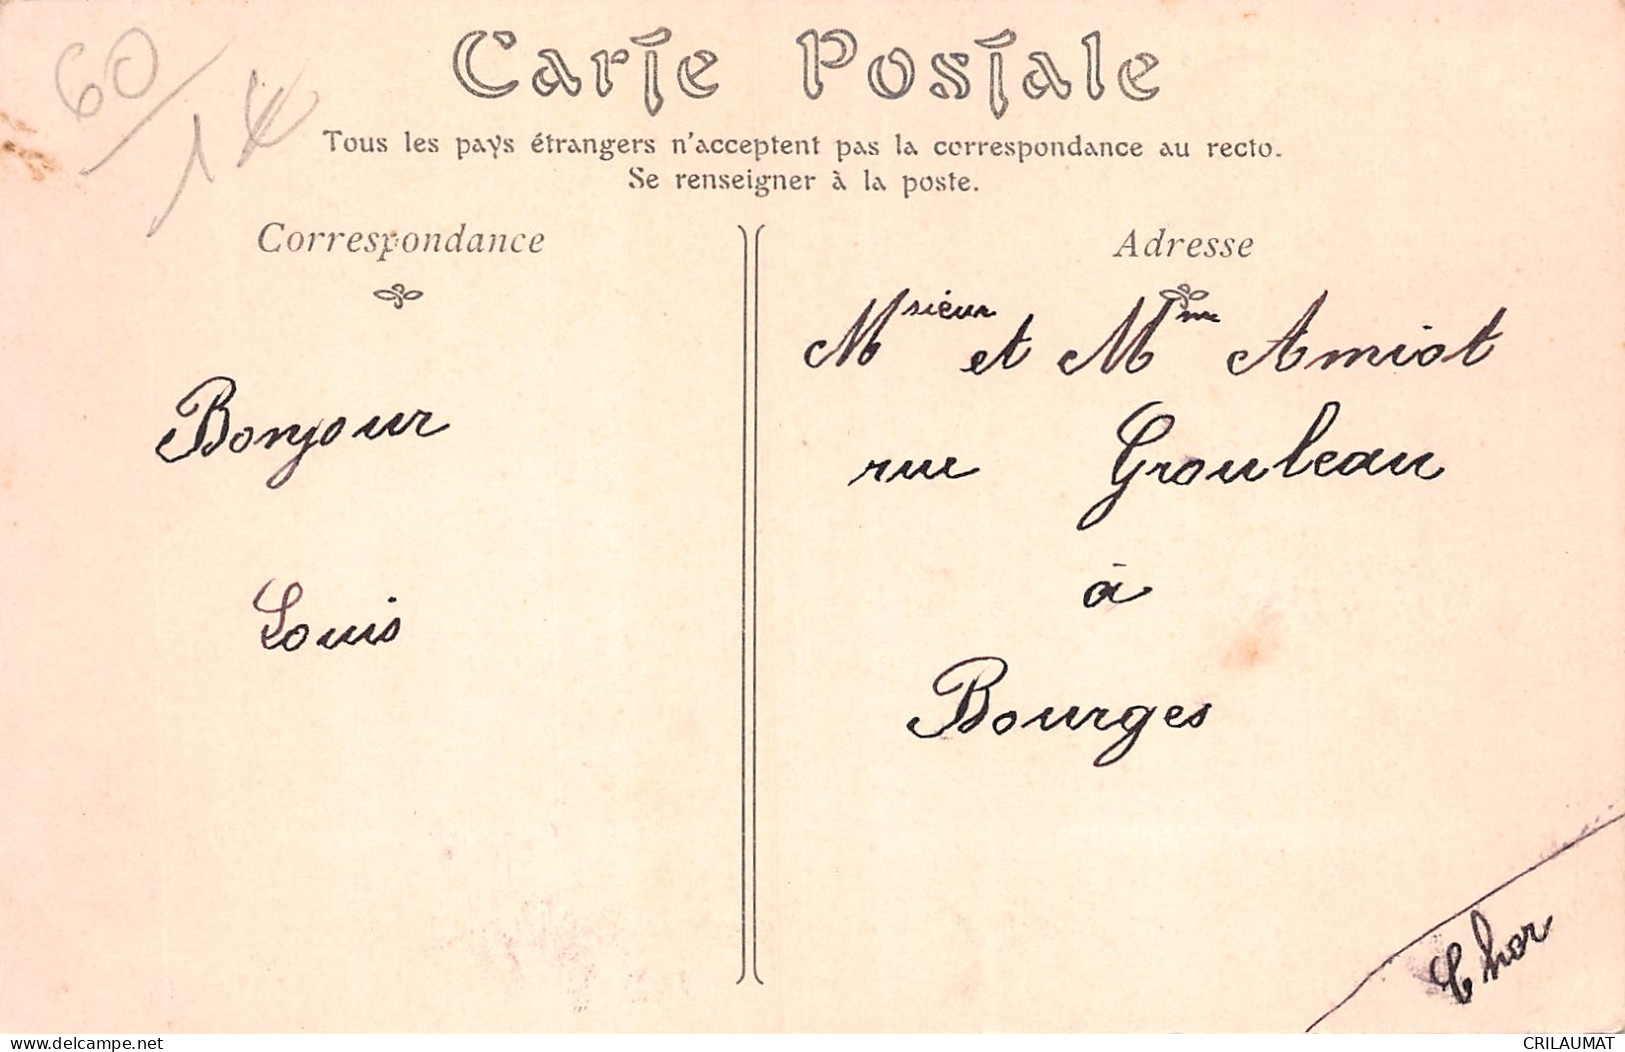 60/1€
Carte Postale
Tous les pays étrangers n'acceptent pas la correspondance au recto.
Se renseigner à la poste.
Correspondance
Bonjour
Louis
Adresse
Msieur et Mme Amiot
rue Grouleau
à
Bourges
Cher
delcampe.net
CRILAUMAT